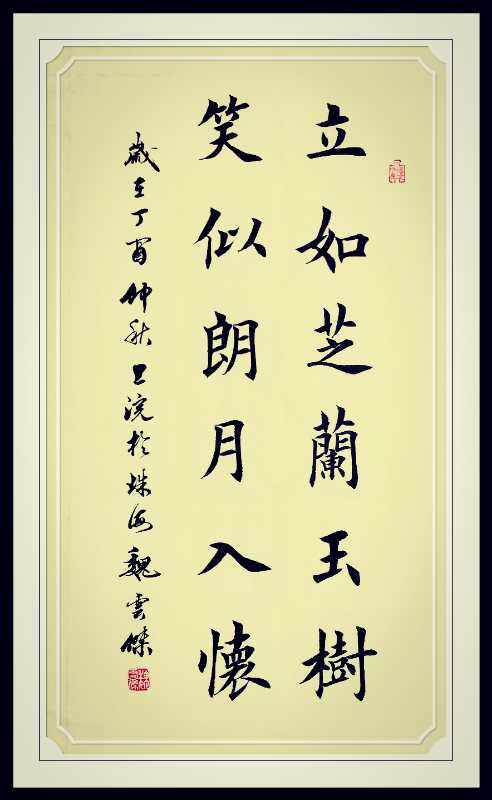 立如芝蘭玉樹
笑似朗月入懷
歲在丁酉仲秋上浣於珠海魏雲傑